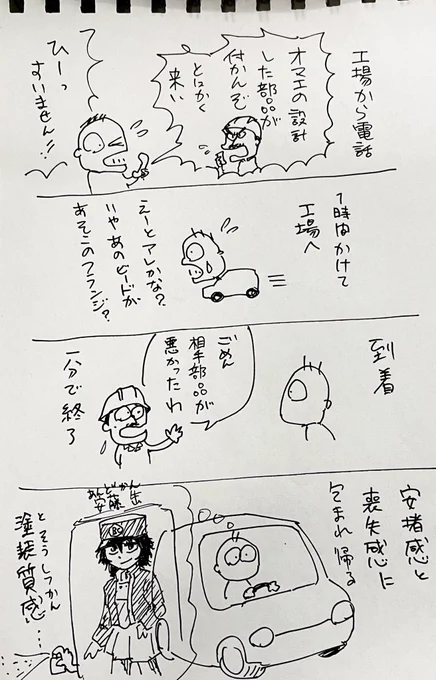 工場から電話
オマエの設計
した部品が
付かんぞ
とにかく
来い
ひーっ
すいません!!
1時間かけて
工場へ
えーとアレかな?
いやあのビードが
あそこのフランジ?
到着
ごめん
相手部品が
悪かったわ
一分で終了
安堵感と
喪失感に
包まれ帰る
安藤缶
とそうしつかん
塗装質感…